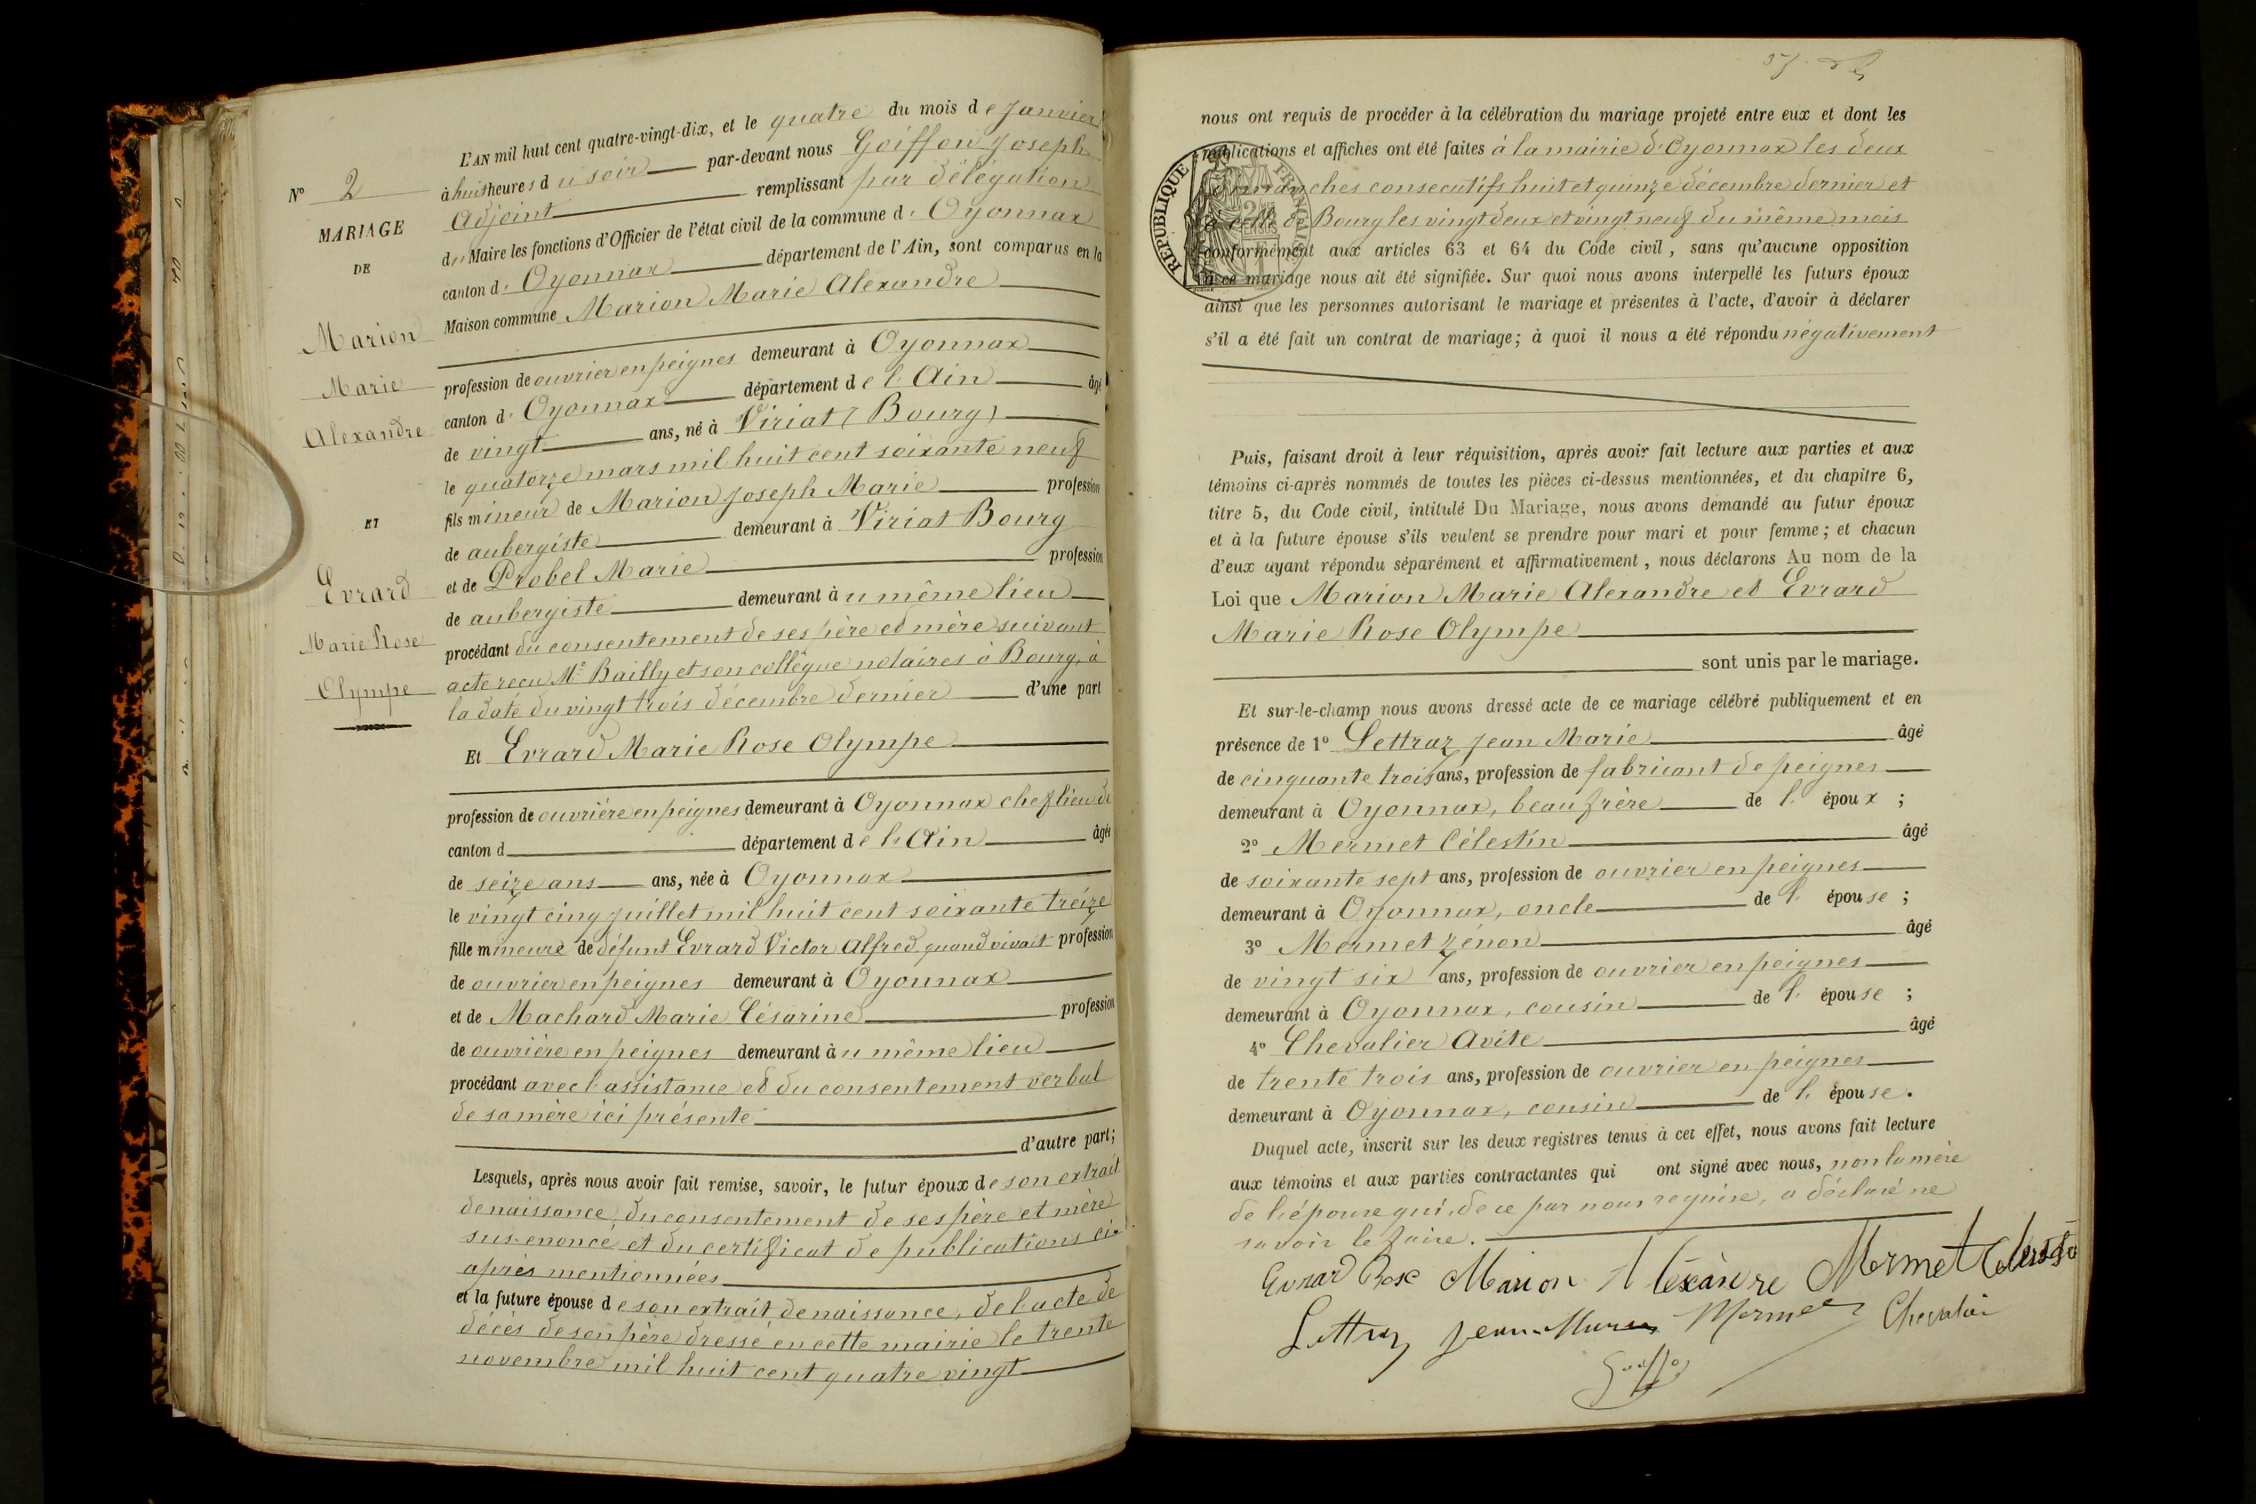 N° 2
MARIAGE
DE
Marion
Marie
Alexandre
ET
Evrard
Marie Rose
Olympe
L'AN mil huit cent quatre-vingt-dix, et le quatre du mois de Janvier
à huit heures du soir par-devant nous Goiffon Joseph
Adjoint remplissant par délégation
du Maire les fonctions d'Officier de l'état civil de la commune d' Oyonnax
canton d' Oyonnax département de l'Ain, sont comparus en la
Maison commune Marion Marie Alexandre
profession de ouvrier en peignes demeurant à Oyonnax
canton d' Oyonnax département de l'Ain âgé
de vingt ans, né à Viriat (Bourg)
le quatorze mars mil huit cent soixante neuf
fils mineur de Marion Joseph Marie profession
de aubergiste demeurant à Viriat Bourg
et de Probel Marie profession
de aubergiste demeurant au même lieu
procédant du consentement de ses père et mère suivant
acte reçu Me Bailly et son collègue notaires à Bourg, à
la date du vingt trois décembre dernier d'une part
Et Evrard Marie Rose Olympe
profession de ouvrière en peignes demeurant à Oyonnax chef lieu de
canton d département de l'Ain âgée
de seize ans ans, née à Oyonnax
le vingt cinq juillet mil huit cent soixante treize
fille mineure de défunt Evrard Victor Alfred quand vivait profession
de ouvrier en peignes demeurant à Oyonnax
et de Machard Marie Césarine profession
de ouvrière en peignes demeurant au même lieu
procédant avec l'assistance et du consentement verbal
de sa mère ici présente
d'autre part;
Lesquels, après nous avoir fait remise, savoir, le futur époux de son extrait
de naissance, du consentement de ses père et mère
sus-énoncé, et du certificat de publications ci-
après mentionnées
et la future épouse de son extrait de naissance, de l'acte de
décès de son père dressé en cette mairie le trente
novembre mil huit cent quatre vingt
nous ont requis de procéder à la célébration du mariage projeté entre eux et dont les
publications et affiches ont été faites à la mairie d'Oyonnax les deux
dimanches consécutifs huit et quinze décembre dernier et
à celle de Bourg les vingt deux et vingt neuf du même mois
conformément aux articles 63 et 64 du Code civil, sans qu'aucune opposition
à ce mariage nous ait été signifiée. Sur quoi nous avons interpellé les futurs époux
ainsi que les personnes autorisant le mariage et présentes à l'acte, d'avoir à déclarer
s'il a été fait un contrat de mariage; à quoi il nous a été répondu négativement
RÉPUBLIQUE FRANÇAISE
Puis, faisant droit à leur réquisition, après avoir fait lecture aux parties et aux
témoins ci-après nommés de toutes les pièces ci-dessus mentionnées, et du chapitre 6,
titre 5, du Code civil, intitulé Du Mariage, nous avons demandé au futur époux
et à la future épouse s'ils veulent se prendre pour mari et pour femme; et chacun
d'eux ayant répondu séparément et affirmativement, nous déclarons Au nom de la
Loi que Marion Marie Alexandre et Evrard
Marie Rose Olympe
sont unis par le mariage.
Et sur-le-champ nous avons dressé acte de ce mariage célébré publiquement et en
présence de 1° Lettraz Jean Marie âgé
de cinquante trois ans, profession de fabricant de peignes
demeurant à Oyonnax, beau frère de l' époux ;
2° Mermet Célestin âgé
de soixante sept ans, profession de ouvrier en peignes
demeurant à Oyonnax, oncle de l' épouse ;
3° Mermet Zénon âgé
de vingt six ans, profession de ouvrier en peignes
demeurant à Oyonnax, cousin de l' épouse ;
4° Chevalier Avite âgé
de trente trois ans, profession de ouvrier en peignes
demeurant à Oyonnax, cousin de l' épouse.
Duquel acte, inscrit sur les deux registres tenus à cet effet, nous avons fait lecture
aux témoins et aux parties contractantes qui ont signé avec nous, non la mère
de l'épouse qui, de ce par nous requise, a déclaré ne
savoir le faire.
Evrard Rose Marion Alexandre Mermet Celestin
Lettraz Jean-Marie Mermet Chevalier
Goiffon